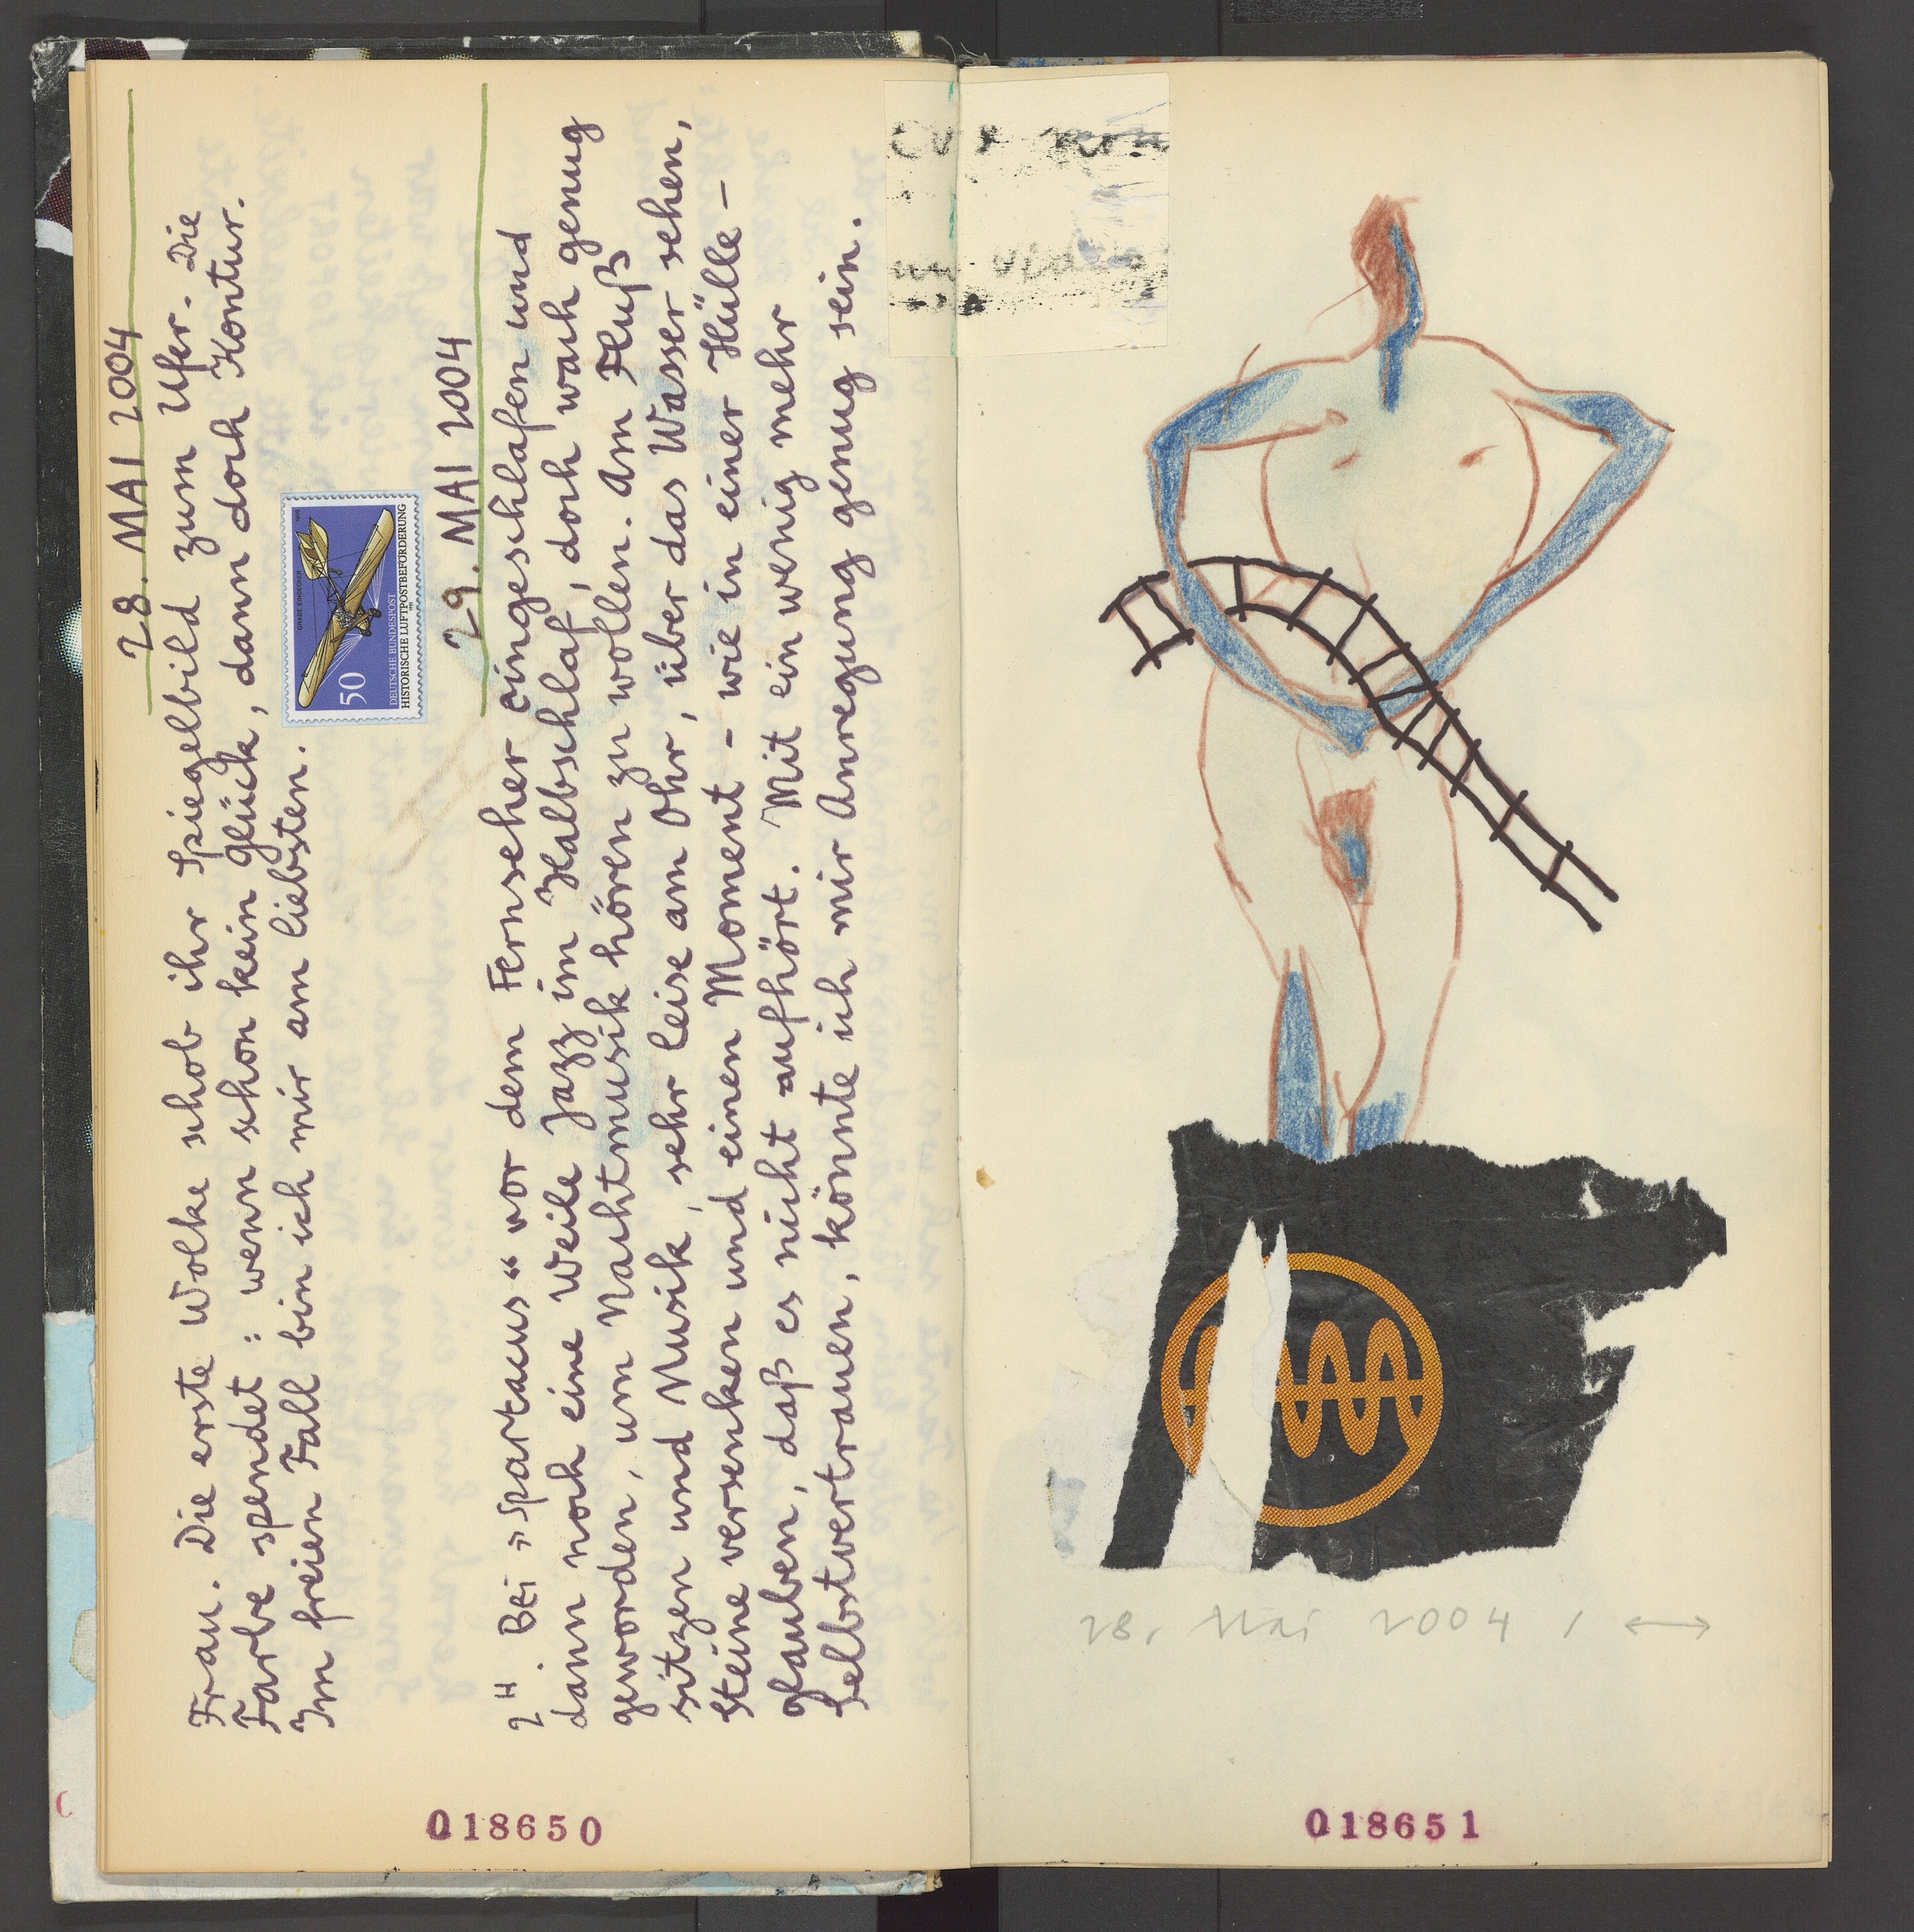 28. MAI 2004
Frau. Die erste Wolke schob ihr Spiegelbild zum Ufer. Die
Farbe spendet: wenn schon kein Glück, dann doch Kontur.
Im freien Fall bin ich mir am liebsten.
GRADE EINDECKER
50
DEUTSCHE BUNDESPOST
HISTORISCHE LUFTPOSTBEFÖRDERUNG
29. MAI 2004
2H. Bei »Spartacus“ vor dem Fernseher eingeschlafen und
dann noch eine Weile Jazz im Halbschlaf, doch wach genug
geworden, um Nachtmusik hören zu wollen. Am Fluß
sitzen und Musik, sehr leise am Ohr, über das Wasser sehen,
Steine versenken und einen Moment - wie in einer Hülle -
glauben, daß es nicht aufhört. Mit ein wenig mehr
Selbstvertrauen, könnte ich mir Anregung genug sein.
018650
28. Mai 2004 / ↔
018651